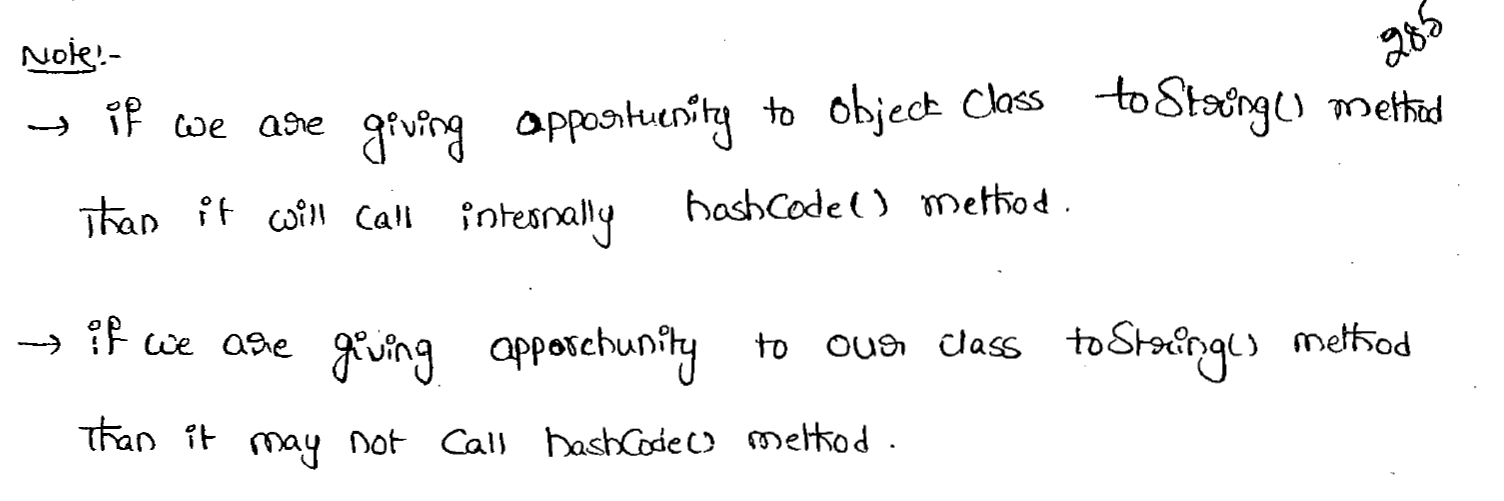 Note:-
285
→ if we are giving opportuenity to object class toString() method
Than it will call internally hashCode() method.
→ if we are giving opporchunity to our class toString() method
Than it may not call hashCode() method.